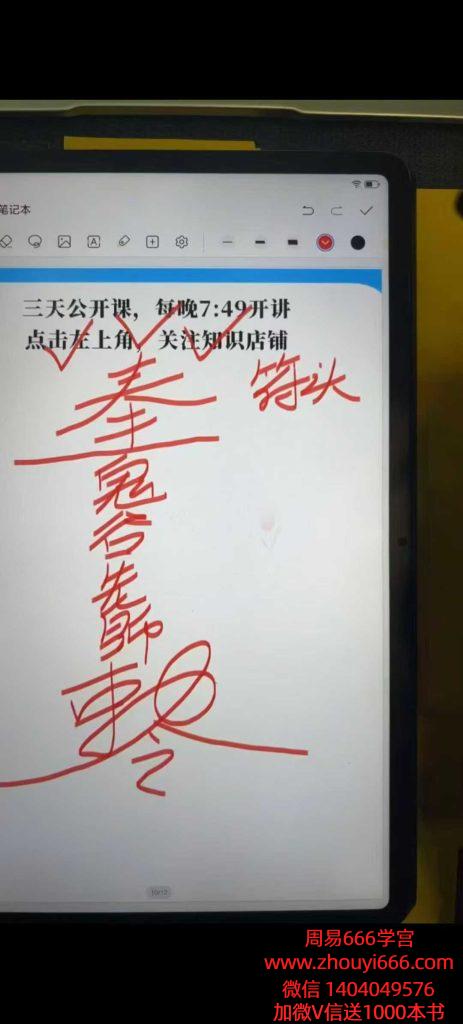 笔记本
三天公开课，每晚7:49开讲
点击左上角，关注知识店铺
符头
奉
鬼谷先师
敕令
10/12
周易666学宫
www.zhouyi666.com
微信 1404049576
加微V信送1000本书